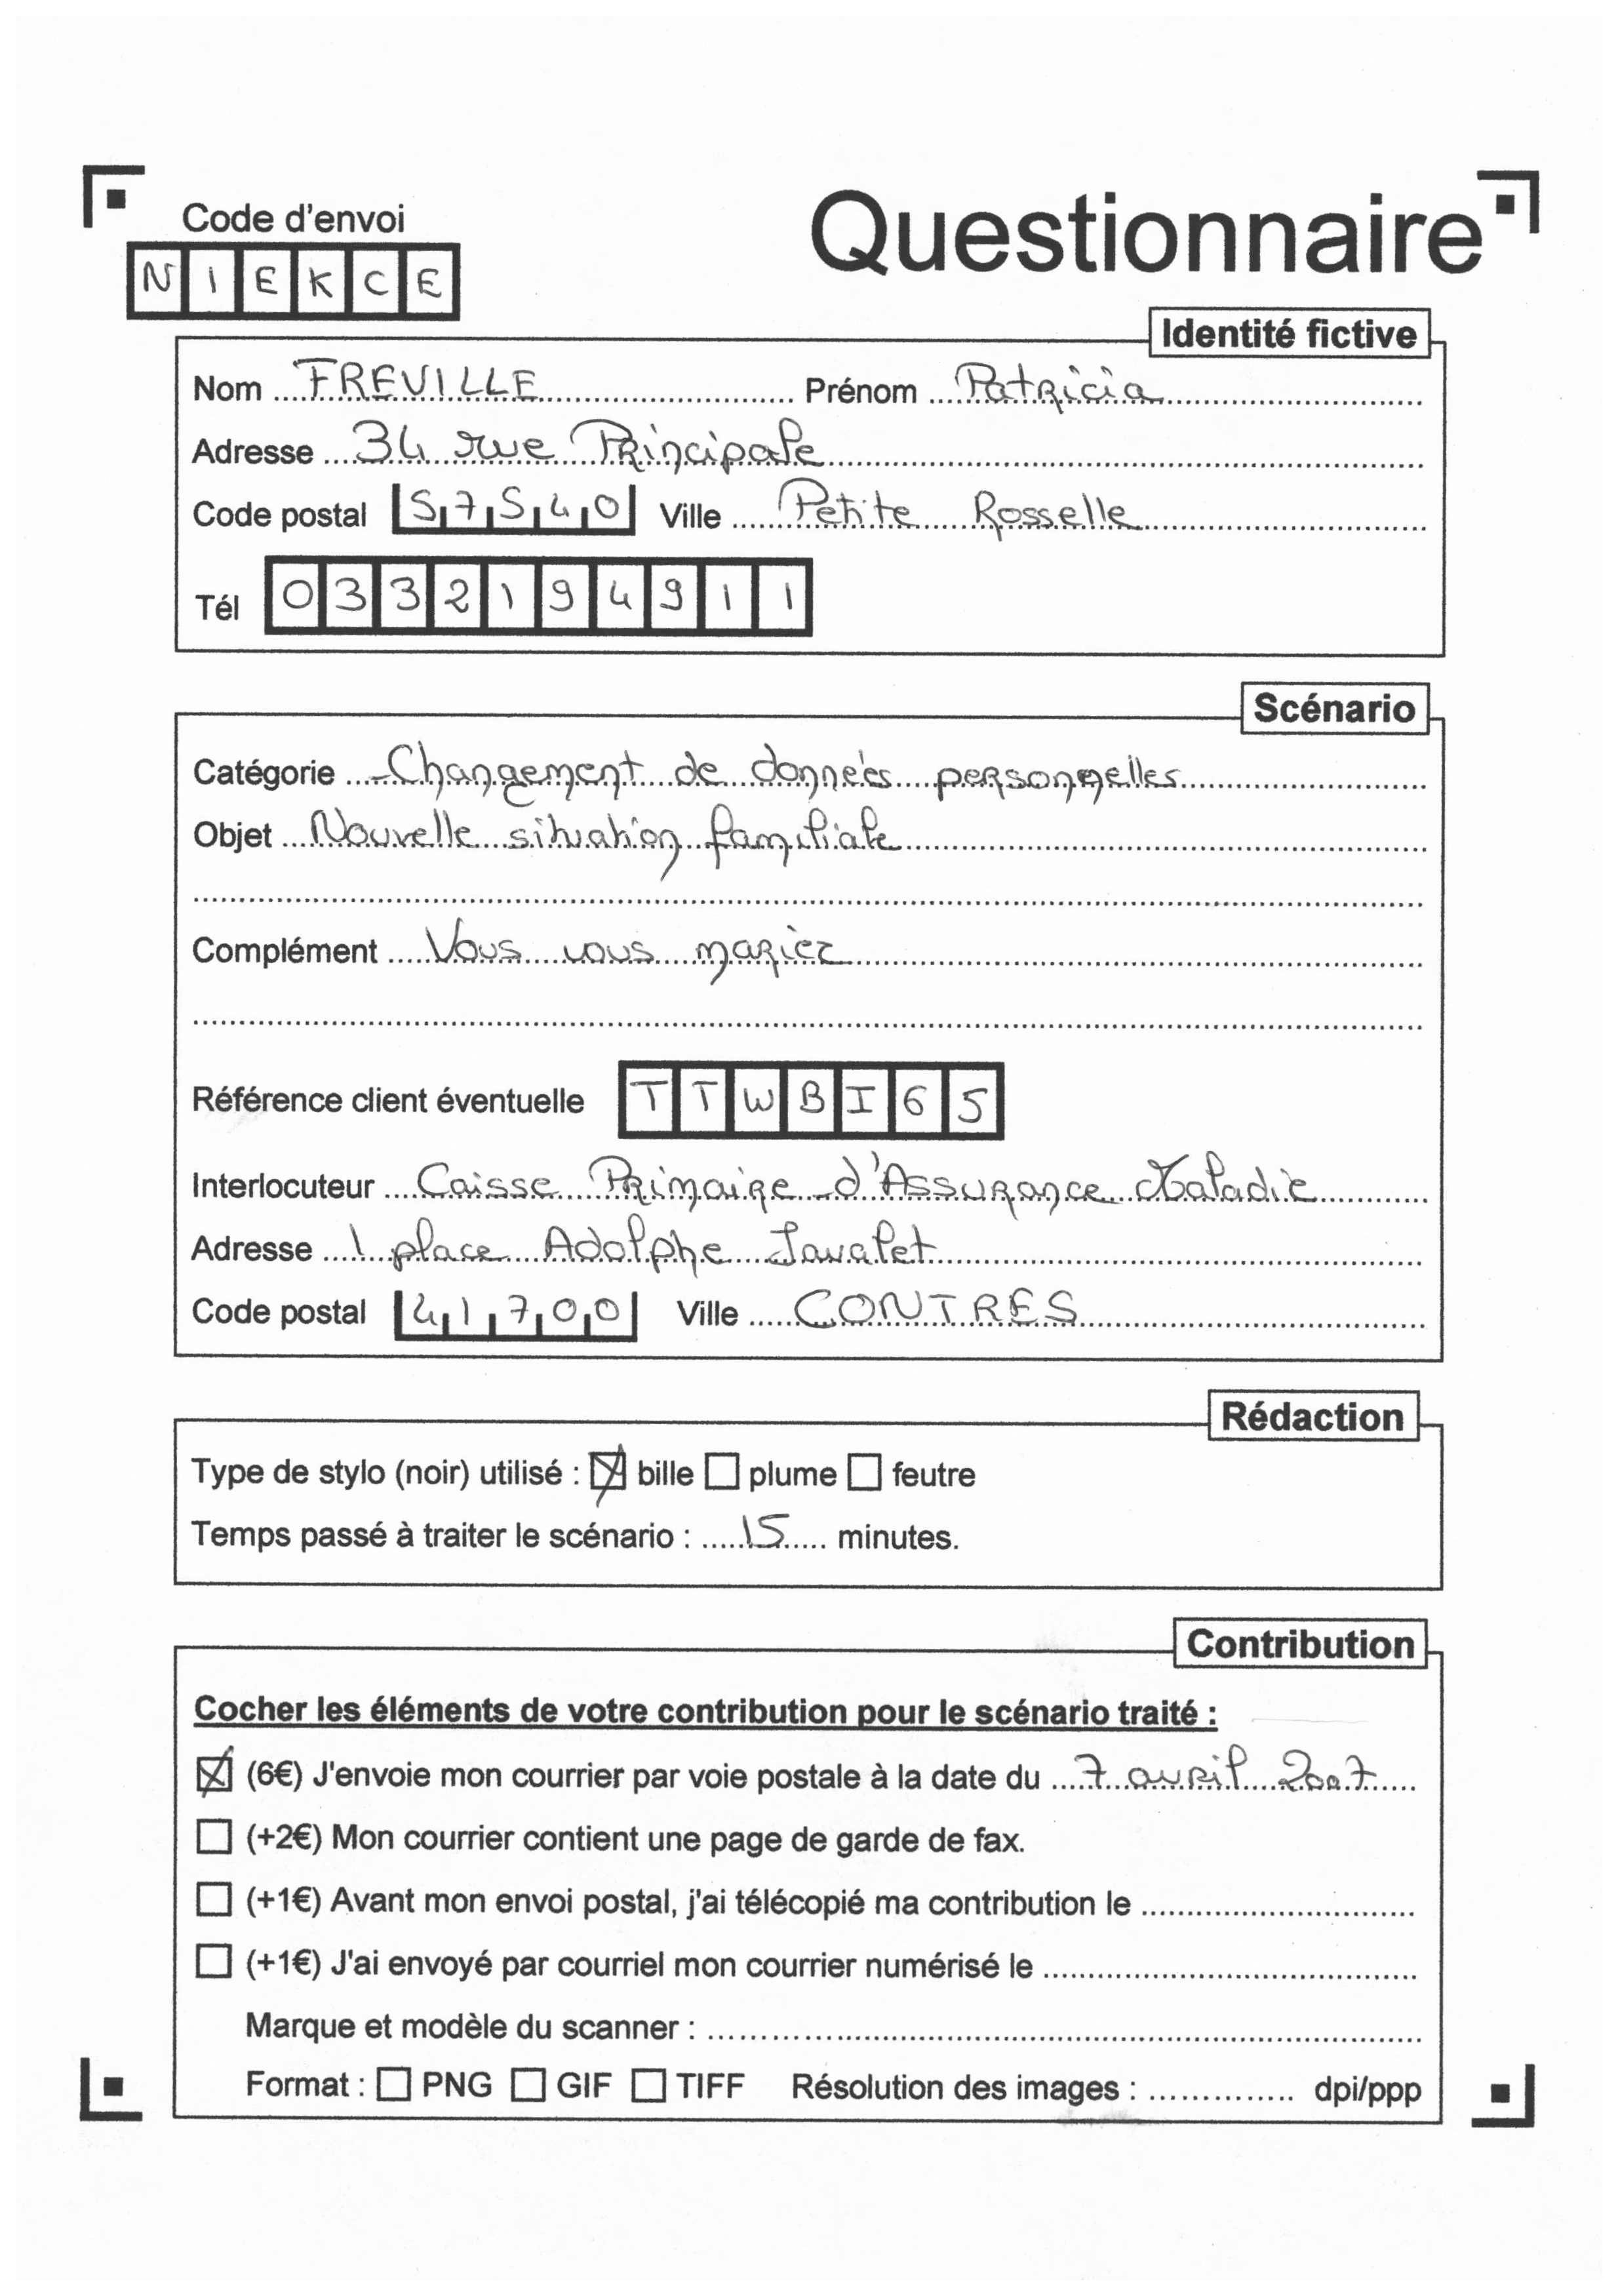 Code d'envoi
Questionnaire
NIEKCE
Identité fictive
Nom FREVILLE Prénom Patricia
Adresse 34 rue Principale
Code postal 57540 Ville Petite Rosselle
Tél 0332194911
Scénario
Catégorie Changement de données personnelles
Objet Nouvelle situation familiale
Complément Vous vous mariez
Référence client éventuelle TTWBI65
Interlocuteur Caisse Primaire d'Assurance Maladie
Adresse 1 place Adolphe Javalet
Code postal 41700 Ville CONTRES
Rédaction
Type de stylo (noir) utilisé : ☒ bille ☐ plume ☐ feutre
Temps passé à traiter le scénario : 15 minutes.
Contribution
Cocher les éléments de votre contribution pour le scénario traité :
☒ (6€) J'envoie mon courrier par voie postale à la date du 7 avril 2007
☐ (+2€) Mon courrier contient une page de garde de fax.
☐ (+1€) Avant mon envoi postal, j'ai télécopié ma contribution le
☐ (+1€) J'ai envoyé par courriel mon courrier numérisé le
Marque et modèle du scanner :
Format : ☐ PNG ☐ GIF ☐ TIFF Résolution des images : dpi/ppp